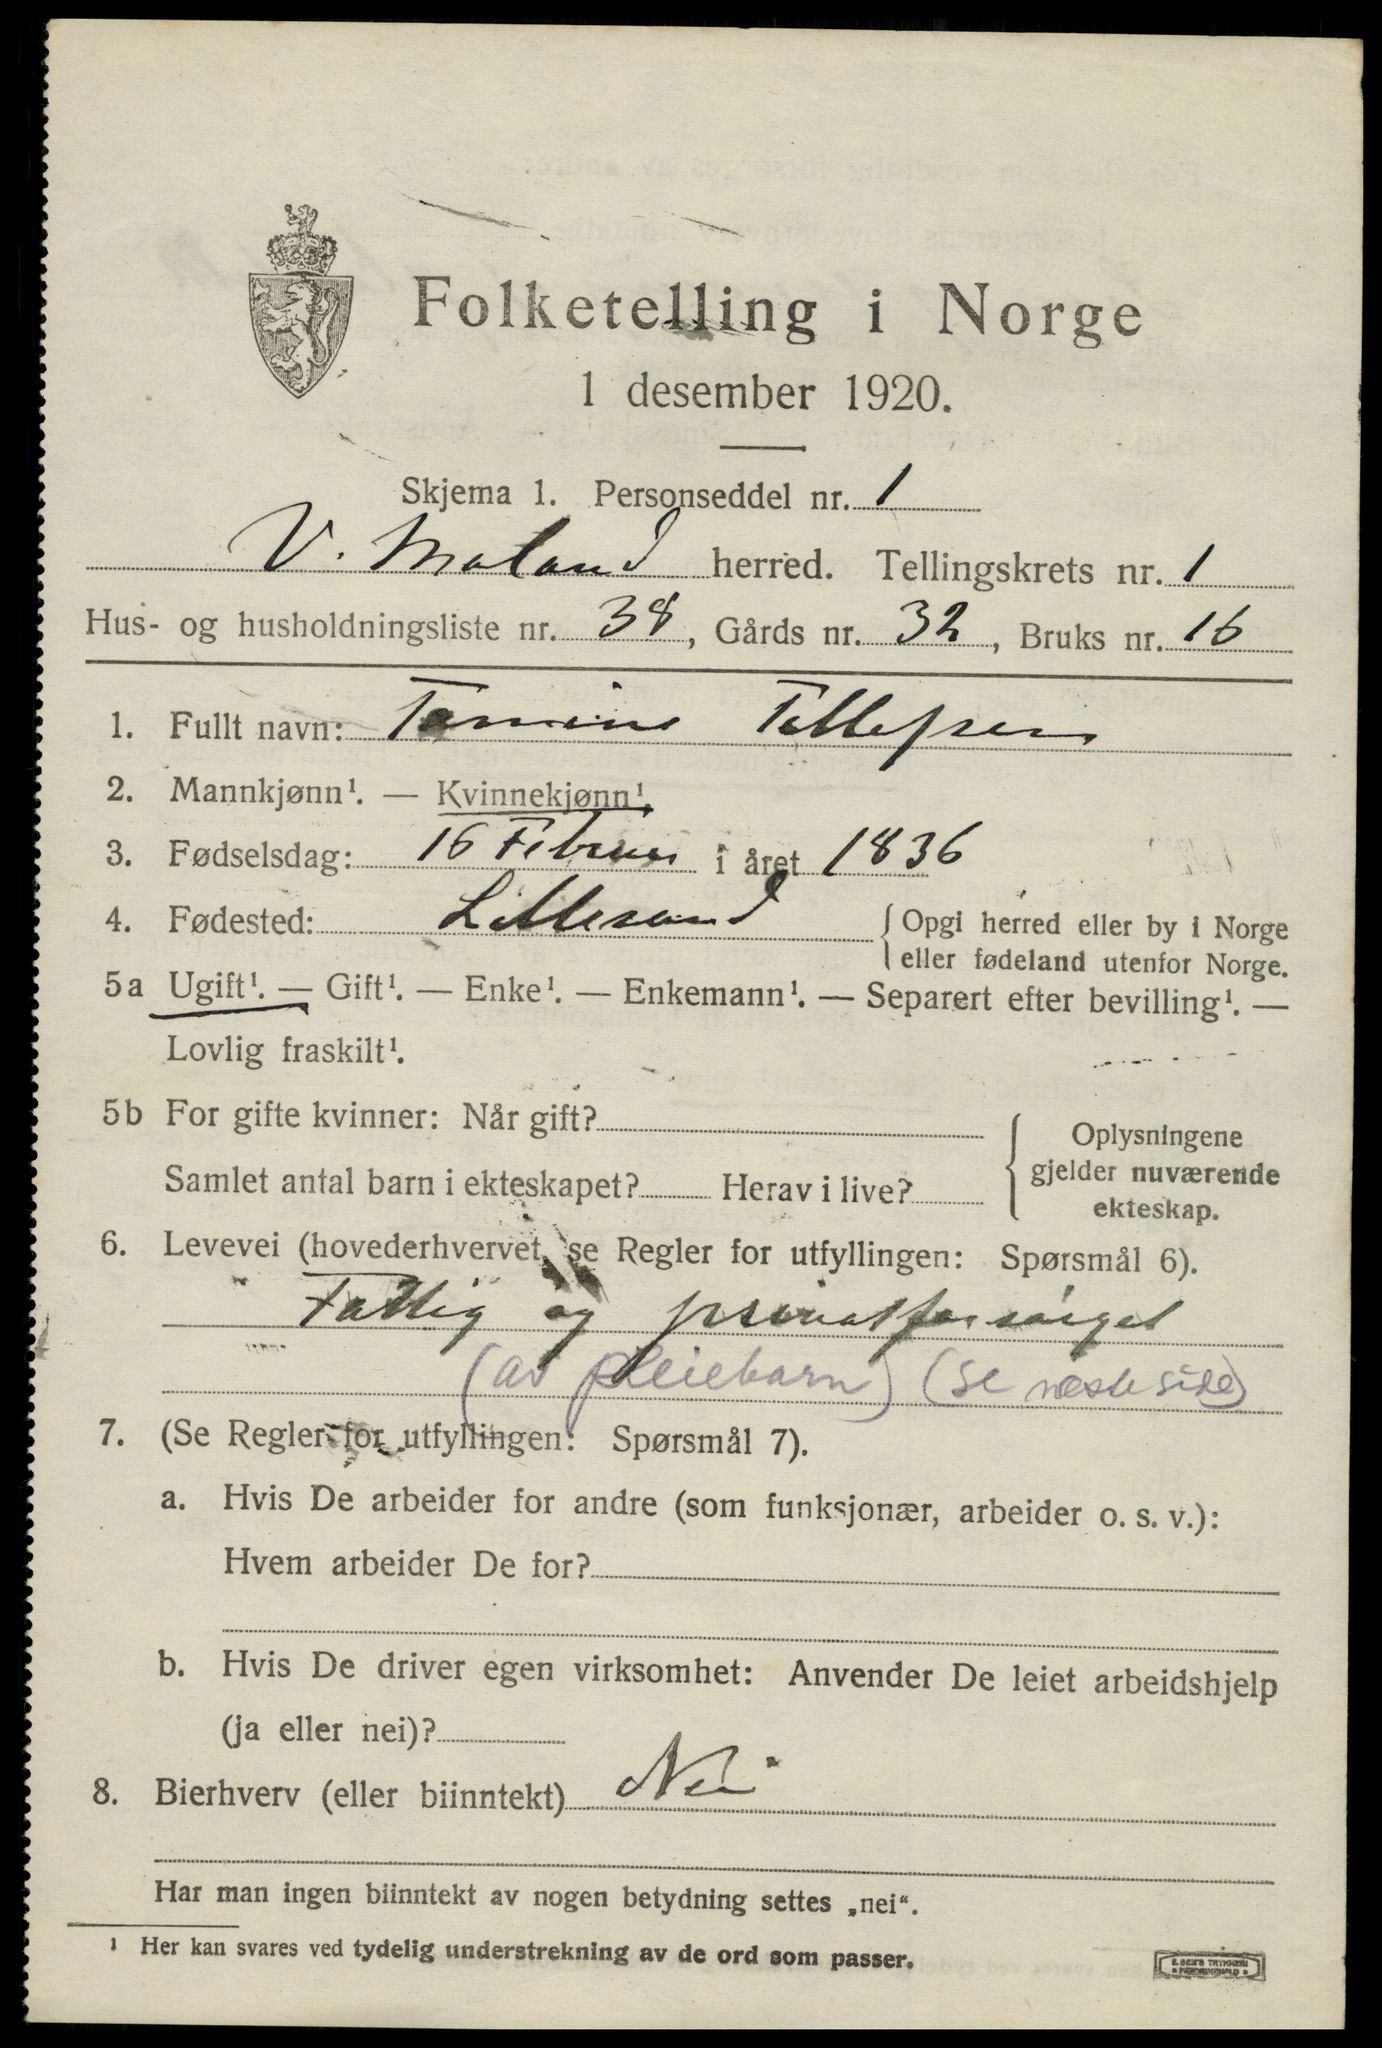 Folketelling i Norge
1 desember 1920.
Skjema 1. Personseddel nr. 1
V. Moland herred. Tellingskrets nr. 1
Hus- og husholdningsliste nr. 38, Gårds nr. 32, Bruks nr. 16
1. Fullt navn: Tomine Tellefsen
2. Mannkjønn¹. — Kvinnekjønn¹.
3. Fødselsdag: 16 Februar i året 1836
4. Fødested: Lillesand { Opgi herred eller by i Norge
eller fødeland utenfor Norge.
5a Ugift¹. — Gift¹. — Enke¹. — Enkemann¹. — Separert efter bevilling¹. —
Lovlig fraskilt¹.
5b For gifte kvinner: Når gift?
Samlet antal barn i ekteskapet? Herav i live?
{ Oplysningene
gjelder nuværende
ekteskap.
6. Levevei (hovederhvervet, se Regler for utfyllingen: Spørsmål 6).
Fattig og privatforsørget
(av pleiebarn) (se næste side)
7. (Se Regler for utfyllingen: Spørsmål 7).
a. Hvis De arbeider for andre (som funksjonær, arbeider o. s. v.):
Hvem arbeider De for?
b. Hvis De driver egen virksomhet: Anvender De leiet arbeidshjelp
(ja eller nei)?
8. Bierhverv (eller biinntekt) Nei
Har man ingen biinntekt av nogen betydning settes „nei“.
¹ Her kan svares ved tydelig understrekning av de ord som passer.